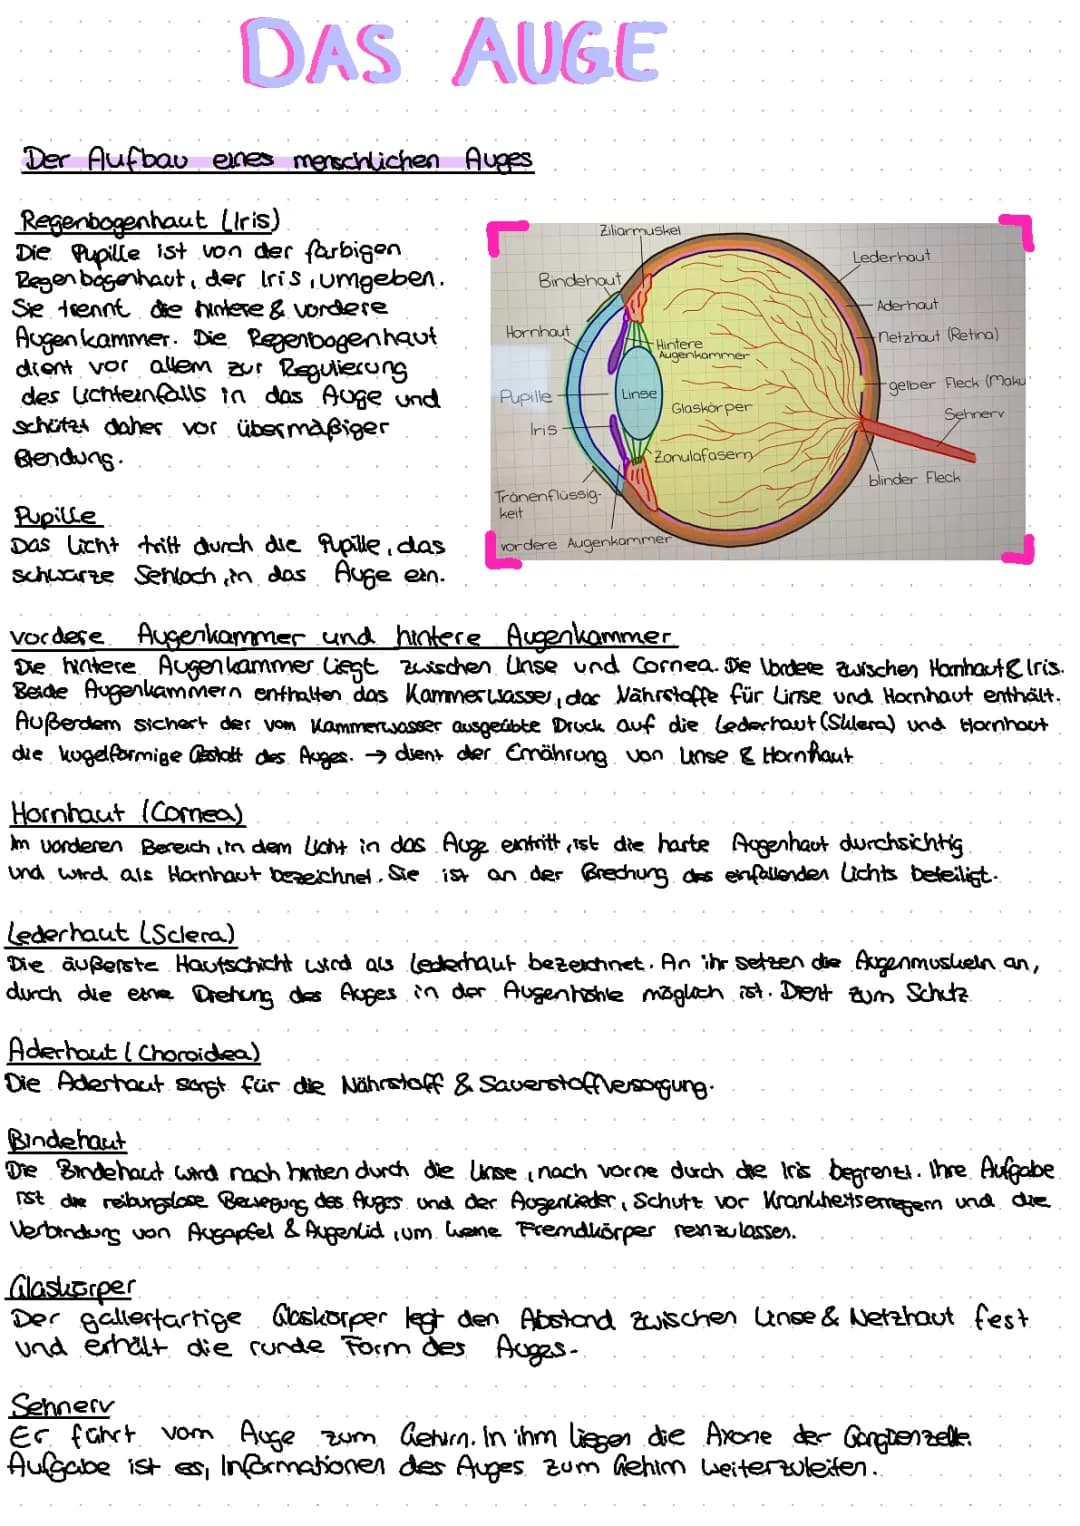 DAS AUGE
Der Aufbau eines menschlichen Auges
Regenbogenhaut (Iris)
Die Pupille ist von der farbigen
Regenbogenhaut, der Iris, umgeben.
Sie trennt die hintere & vordere
Augenkammer. Die Regenbogenhaut
dient vor allem zur Regulierung
des Lichteinfalls in das Auge und
schützt daher vor übermäßiger
Blendung.
Ziliarmuskel
Bindehaut
Hornhaut
Pupille
Iris
Tränenflüssig-
keit
vordere Augenkammer
Hintere
Augenkammer
Linse
Glaskörper
Zonulafasern
Lederhaut
Aderhaut
Netzhaut (Retina)
gelber Fleck (Maku
Sehnerv
blinder Fleck
Pupille
Das Licht tritt durch die Pupille, das
schwarze Sehloch, in das Auge ein.
vordere Augenkammer und hintere Augenkammer
Die hintere Augenkammer liegt zwischen Linse und Cornea. Die Vordere zwischen Hornhaut & Iris.
Beide Augenkammern enthalten das Kammerwasser, das Nährstoffe für Linse und Hornhaut enthält.
Außerdem sichert der vom Kammerwasser ausgeübte Druck auf die Lederhaut (Sklera) und Hornhaut
die kugelförmige Gestalt des Auges. → dient der Ernährung von Linse & Hornhaut
Hornhaut (Cornea)
Im vorderen Bereich, in dem Licht in das Auge eintritt, ist die harte Augenhaut durchsichtig
und wird als Hornhaut bezeichnet. Sie ist an der Brechung des einfallenden Lichts beteiligt.
Lederhaut (Sclera)
Die äußerste Hautschicht wird als Lederhaut bezeichnet. An ihr setzen die Augenmuskeln an,
durch die eine Drehung des Auges in der Augenhöhle möglich ist. Dient zum Schutz
Aderhaut (Choroidea)
Die Aderhaut sorgt für die Nährstoff & Sauerstoffversorgung.
Bindehaut
Die Bindehaut wird nach hinten durch die Linse, nach vorne durch die Iris begrenzt. Ihre Aufgabe
ist die reibungslose Bewegung des Auges und der Augenlieder, Schutz vor Krankheitserregern und die
Verbindung von Augapfel & Augenlid, um keine Fremdkörper reinzulassen.
Glaskörper
Der gallertartige Glaskörper legt den Abstand zwischen Linse & Netzhaut fest
und erhält die runde Form des Auges.
Sehnerv
Er führt vom Auge zum Gehirn. In ihm liegen die Axone der Ganglienzelle.
Aufgabe ist es, Informationen des Auges zum Gehirn weiterzuleiten.